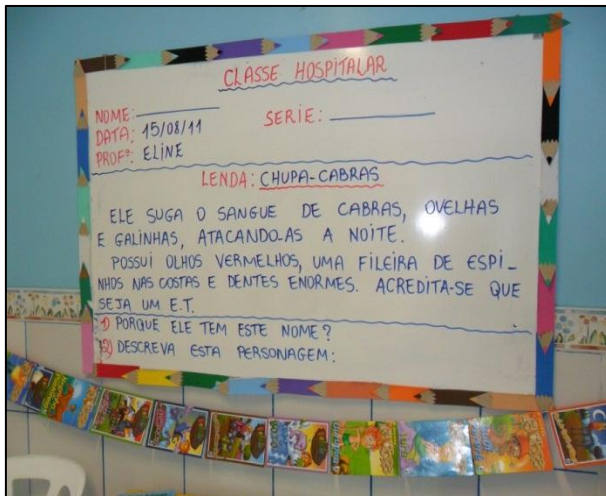 CLASSE HOSPITALAR
NOME: ___________ SERIE: ___________
DATA: 15/08/11
PROFª: ELINE
LENDA: CHUPA-CABRAS
ELE SUGA O SANGUE DE CABRAS, OVELHAS
E GALINHAS, ATACANDO-AS A NOITE.
POSSUI OLHOS VERMELHOS, UMA FILEIRA DE ESPI-
NHOS NAS COSTAS E DENTES ENORMES. ACREDITA-SE QUE
SEJA UM E.T.
1) PORQUE ELE TEM ESTE NOME?
2) DESCREVA ESTA PERSONAGEM: